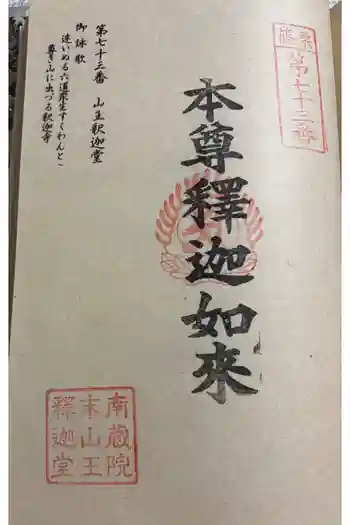 霊場
第七十三番
本尊釋迦如來
第七十三番 山王釈迦堂
御詠歌
迷いぬる六道衆生すくわんと
尊き山に出づる釈迦寺
南蔵院
末山王
釋迦堂